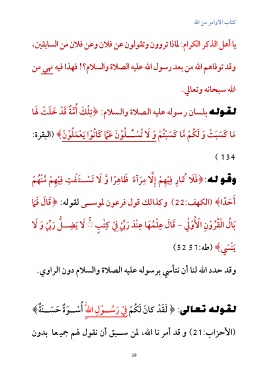 كتاب الأوامر من الله
يا أهل الذكر الكرام: لماذا تروون وتقولون عن فلان وعن فلان من السابقين،
وقد توفاهم الله من بعد رسول الله عليه الصلاة والسلام؟! فهذا فيه نهي من
الله سبحانه وتعالى.
لقوله بلسان رسوله عليه الصلاة والسلام: ﴿تِلْكَ أُمَّةٌ قَدْ خَلَتْ لَهَا
مَا كَسَبَتْ وَ لَكُمْ مَّا كَسَبْتُمْ وَ لَا تُسْـَٔلُوْنَ عَمَّا كَانُوْا يَعْمَلُوْنَ﴾ (البقرة:
134 )
وقوله:﴿فَلَا تُمَارِ فِيْهِمْ اِلَّا مِرَآءً ظَاهِرًا وَّ لَا تَسْتَفْتِ فِيْهِمْ مِّنْهُمْ
اَحَدًا﴾ (الكهف:22) وكذالك قول فرعون لموسى لقوله: ﴿قَالَ فَمَا
بَالُ الْقُرُوْنِ الْاُوْلٰى – قَالَ عِلْمُهَا عِنْدَ رَبِّيْ فِيْ كِتٰبٍ ۚ لَا يَضِلُّ رَبِّيْ وَ لَا
يَنْسَى﴾ (طه:51 52)
وقد حدد الله لنا أن نتأسي برسوله عليه الصلاة والسلام دون الراوي.
لقوله تعالى: ﴿ لَقَدْ كَانَ لَكُمْ فِيْ رَسُوْلِ اللهِ اُسْوَةٌ حَسَنَةٌ﴾
(الأحزاب:21) و قد أمرنا الله، لمن سبق أن نقول لهم جميعا بدون
59